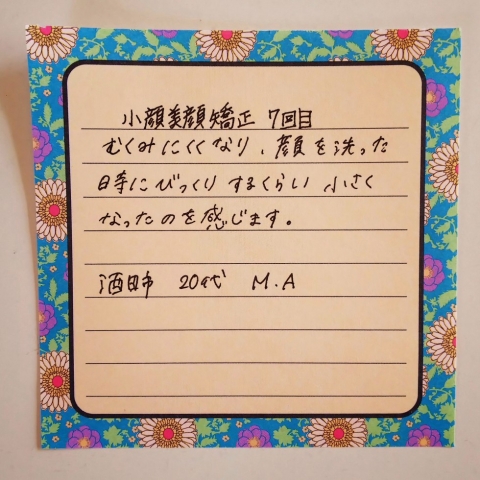 小顔美顔矯正 7回目
むくみにくくなり、顔を洗った
時にびっくりするくらい 小さく
なったのを感じます。
酒田市 20代 M.A